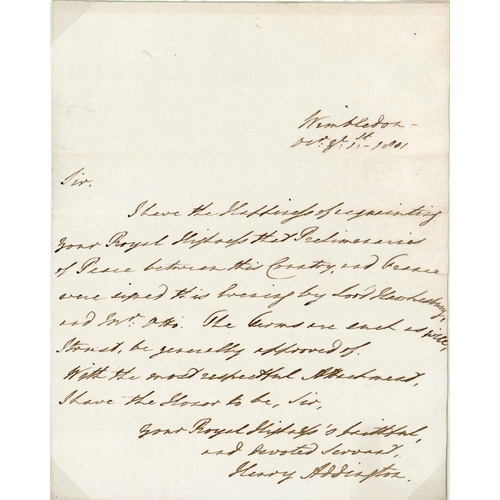 Wimbledon -
Octr. ye. 1st. - 1801
Sir,
I have the Happiness of acquainting
your Royal Highness that Preliminaries
of Peace between this Country, and France
were signed this Evening by Lord Hawkesbury,
and Monr. Otto. The Terms are such as will,
I trust, be generally approved of.
With the most respectful Attachment,
I have the Honor to be, Sir,
your Royal Highness's faithful,
and devoted Servant,
Henry Addington.